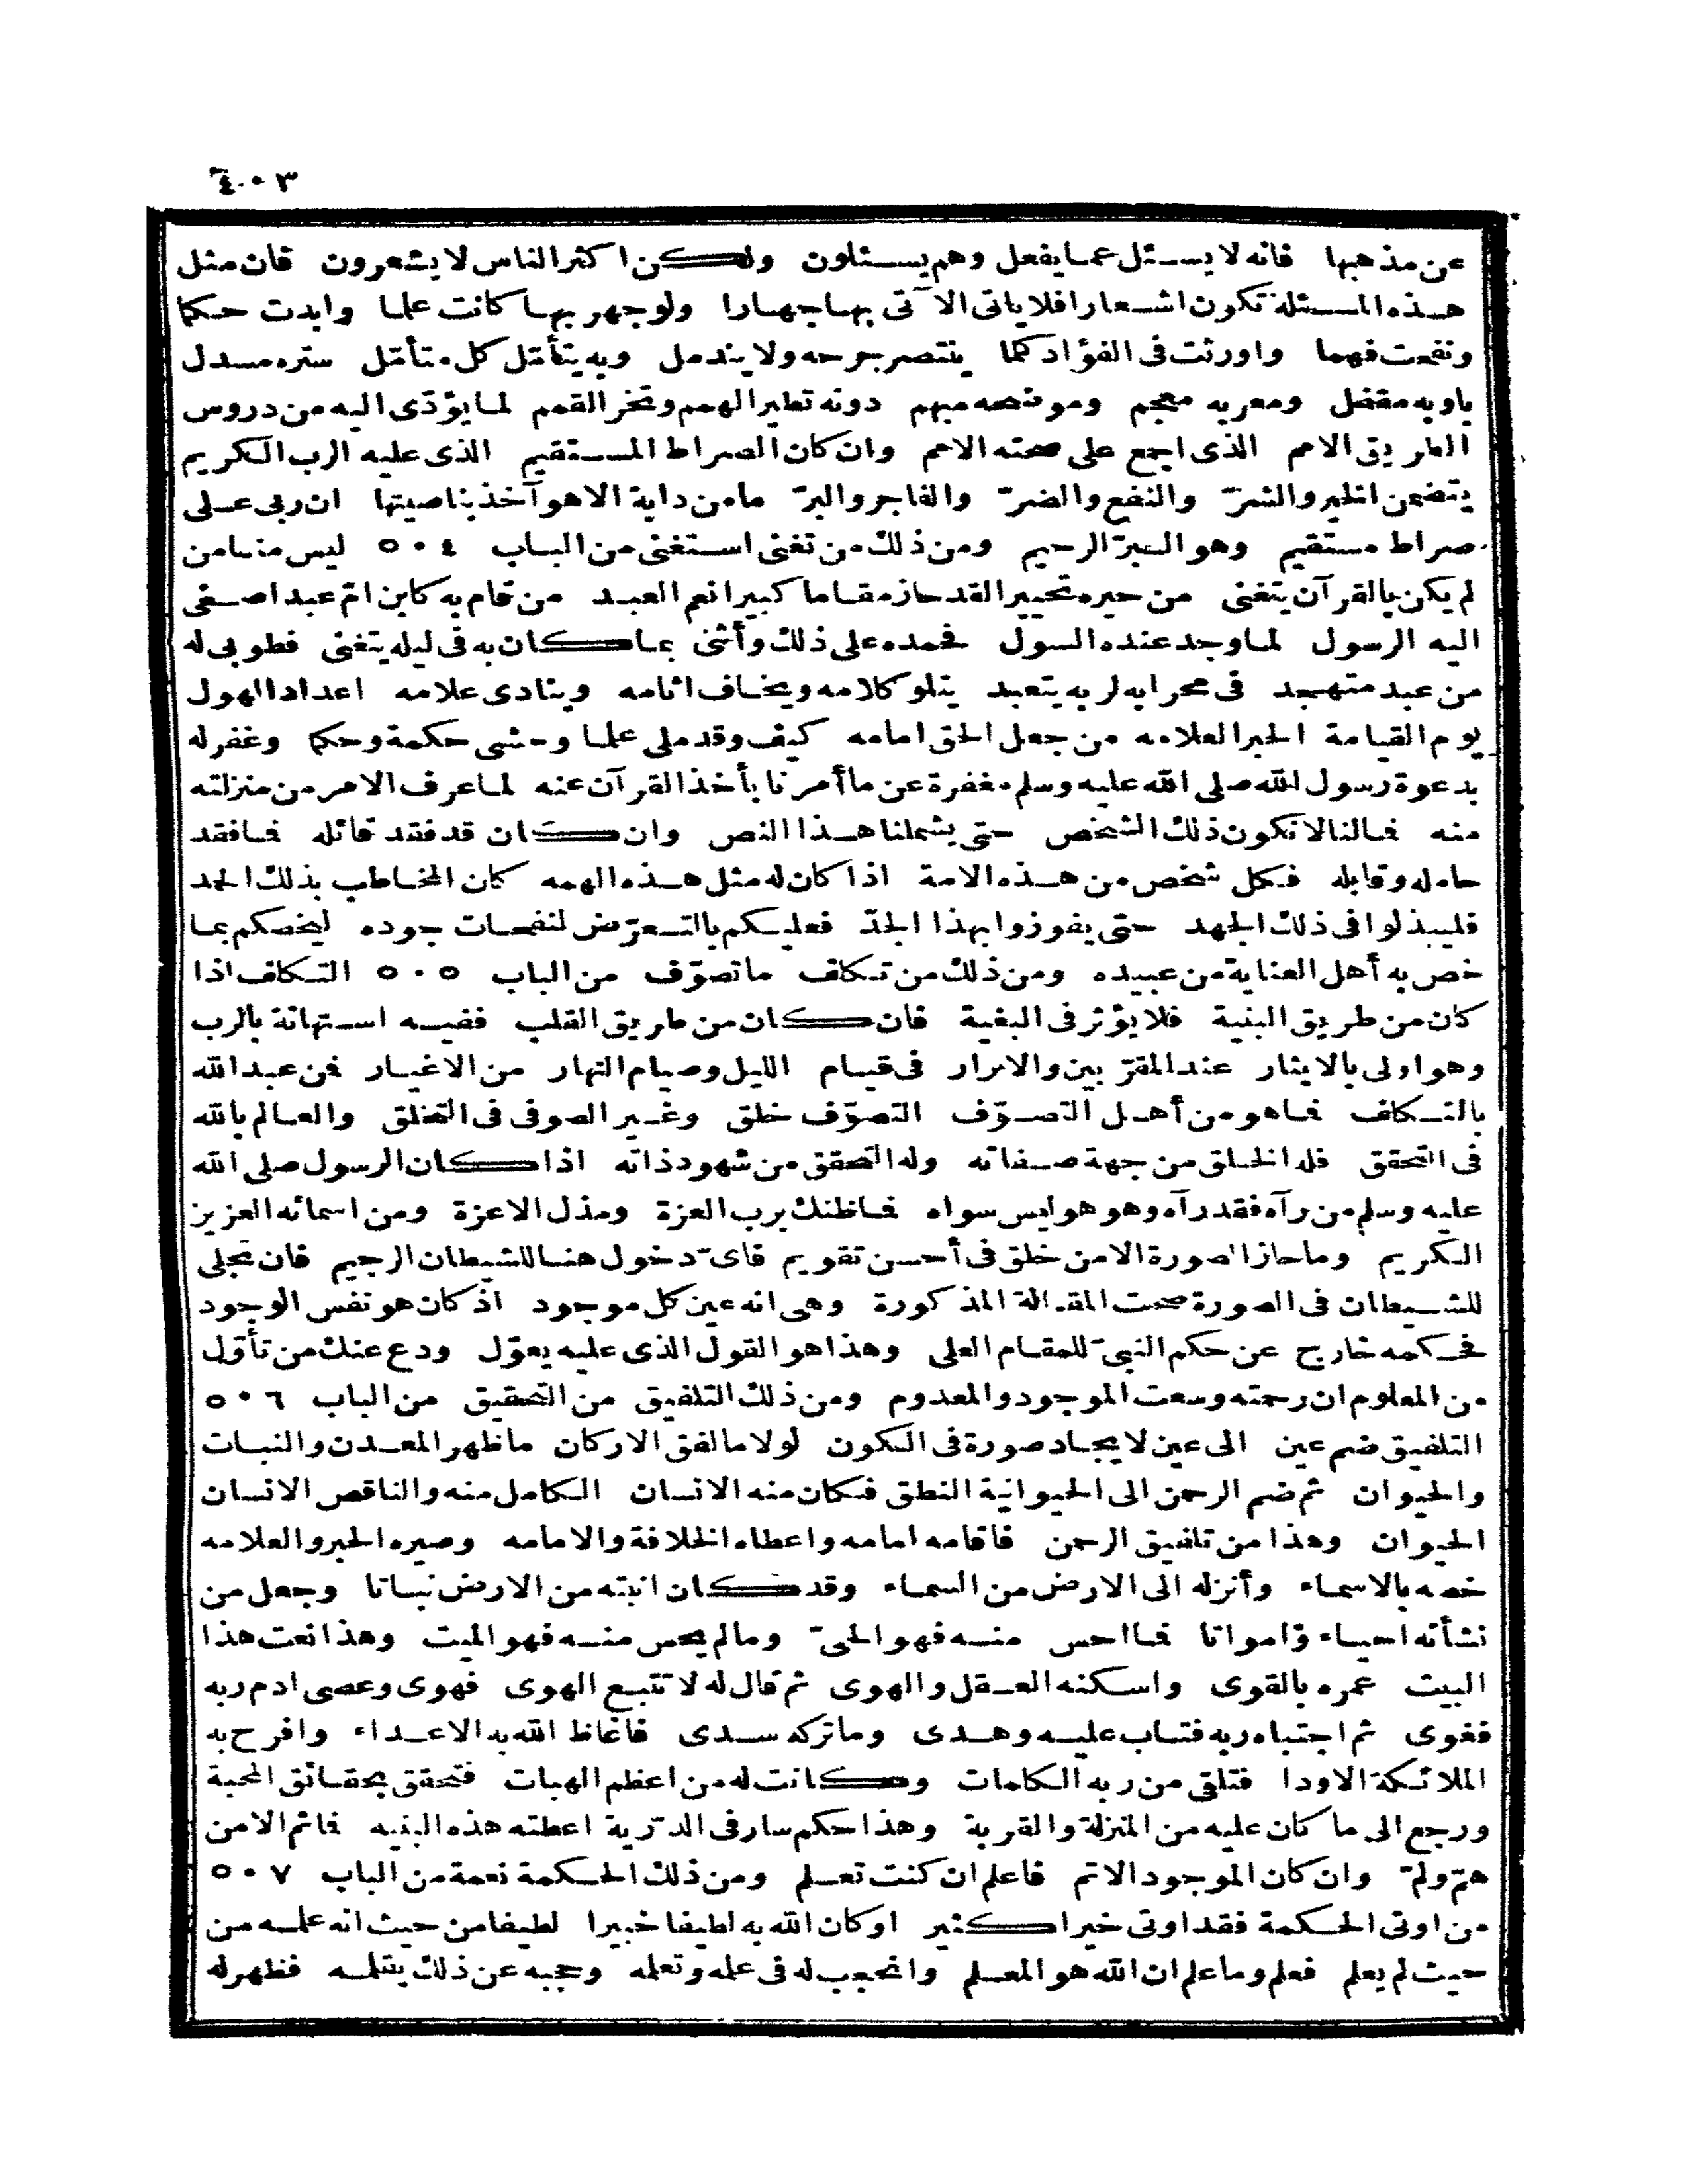 ٤٠٣
عن مذهبها فانه لا يسئل عما يفعل وهم يسئلون ولكن اكثر الناس لا يشعرون فان مثل
هذه المسئلة تكون اشعارا فلا ياتى الآتى بها جهارا ولو جهر بها كانت علما وابدت حكما
ونفحت فهما واورثت فى الفؤاد كلما ينتصر جرحه ولا يندمل وبه يتأمّل كل متأمّل ستره مسدل
باوبه مقفل ومعربه معجم وموضحه مبهم دونه تطير الهمم وتخر القمم لما يؤدّى اليه من دروس
الطريق الامم الذى اجمع على صحته الامم وان كان الصراط المستقيم الذى عليه الرب الكريم
يتضمن الخير والشرّ والنفع والضرّ والفاجر والبرّ ما من دابة الا هو آخذ بناصيتها ان ربى على
صراط مستقيم وهو البرّ الرحيم ومن ذلك من تغنى استغنى من الباب ٥٠٤ ليس منا من
لم يكن بالقرآن يتغنى من حيره تحييرا لقد حاز مقاما كبيرا نعم العبد من قام به كابن امّ عبد اصغى
اليه الرسول لما وجد عنده السول فحمده على ذلك وأثنى بما كان به فى ليله يتغنى فطوبى له
من عبد متهجد فى محرابه لربه يتعبد يتلو كلامه ويخاف اثامه وينادى علامه اعدادا لهول
يوم القيامة الحبر العلامه من جعل الحق امامه كيف وقد ملى علما وحشى حكمة وحكما وغفر له
بدعوة رسول الله صلى الله عليه وسلم مغفرة عن ما أمرنا بأخذ القرآن عنه لما عرف الامر من منزلته
منه فما لنا لا نكون ذلك الشخص حتى يشملنا هذا النص وان كان قد فقد قائله فما فقد
حامله وقابله فكل شخص من هذه الامة اذا كان له مثل هذه الهمه كان المخاطب بذلك الجد
فليبذلوا فى ذلك الجهد حتى يفوزوا بهذا الجدّ فعليكم بالتعرّض لنفحات جوده ليخصكم بما
خص به أهل العناية من عبيده ومن ذلك من تكلف ما تصوّف من الباب ٥٠٥ التكلف اذا
كان من طريق البنية فلا يؤثر فى البغية فان كان من طريق القلب ففيه استهانة بالرب
وهو اولى بالايثار عند المقرّبين والابرار فى قيام الليل وصيام النهار من الاغيار فمن عبد الله
بالتكلف فما هو من أهل التصوّف التصوّف خلق وغير الصوفى فى التخلق والعالم بالله
فى التحقق فله الخلق من جهة صفاته وله التحقق من شهود ذاته اذا كان الرسول صلى الله
عليه وسلم من رآه فقد رآه وهو هو ليس سواه فما ظنك برب العزة ومذل الاعزة ومن اسمائه العزيز
الكريم وما حاز الصورة الا من خلق فى أحسن تقويم فاىّ دخول هنا للشيطان الرجيم فان تجلى
للشيطان فى الصورة صحت المقالة المذكورة وهى انه عين كل موجود اذ كان هو نفس الوجود
فحكمه خارج عن حكم النبىّ للمقام العلى وهذا هو القول الذى عليه يعوّل ودع عنك من تأوّل
من المعلوم ان رحمته وسعت الموجود والمعدوم ومن ذلك التلفيق من التحقيق من الباب ٥٠٦
التلفيق ضم عين الى عين لايجاد صورة فى الكون لولا ما لفق الاركان ما ظهر المعدن والنبات
والحيوان ثم ضم الرحمن الى الحيوانية النطق فكان منه الانسان الكامل منه والناقص الانسان
الحيوان وهذا من تلفيق الرحمن فاقامه امامه واعطاه الخلافة والامامه وصيره الحبر والعلامه
خصه بالاسماء وأنزله الى الارض من السماء وقد كان انبته من الارض نباتا وجعل من
نشأته احياء وامواتا فما احس منه فهو الحىّ وما لم يحس منه فهو الميت وهذا نعت هذا
البيت عمره بالقوى واسكنه العقل والهوى ثم قال له لا تتبع الهوى فهوى وعصى ادم ربه
فغوى ثم اجتباه ربه فتاب عليه وهدى وما تركه سدى فاغاظ الله به الاعداء وافرح به
الملائكة الاودا فتلقى من ربه الكلمات وكانت له من اعظم الهبات فتحقق بحقائق المحبة
ورجع الى ما كان عليه من المنزلة والقربة وهذا حكم سار فى الذرّية اعطته هذه البنيه فاثم الا من
همّ ولمّ وان كان الموجود الاتم فاعلم ان كنت تعلم ومن ذلك الحكمة نعمة من الباب ٥٠٧
من اوتى الحكمة فقد اوتى خيرا كثير اوكان الله به لطيفا خبيرا لطيفا من حيث انه علمه من
حيث لم يعلم فعلم وما علم ان الله هو المعلم وانحجب له فى علمه وتعلمه وحجبه عن ذلك بقلمه فظهر له